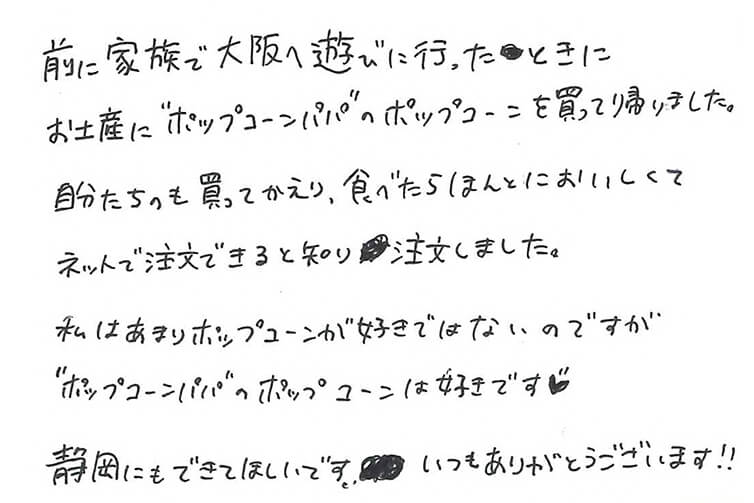 前に家族で大阪へ遊びに行ったときに
お土産に"ポップコーンパパ"のポップコーンを買って帰りました。
自分たちのも買ってかえり、食べたらほんとにおいしくて
ネットで注文できると知り注文しました。
私はあまりポップコーンが好きではないのですが
"ポップコーンパパ"のポップコーンは好きです♥
静岡にもできてほしいです。いつもありがとうございます!!